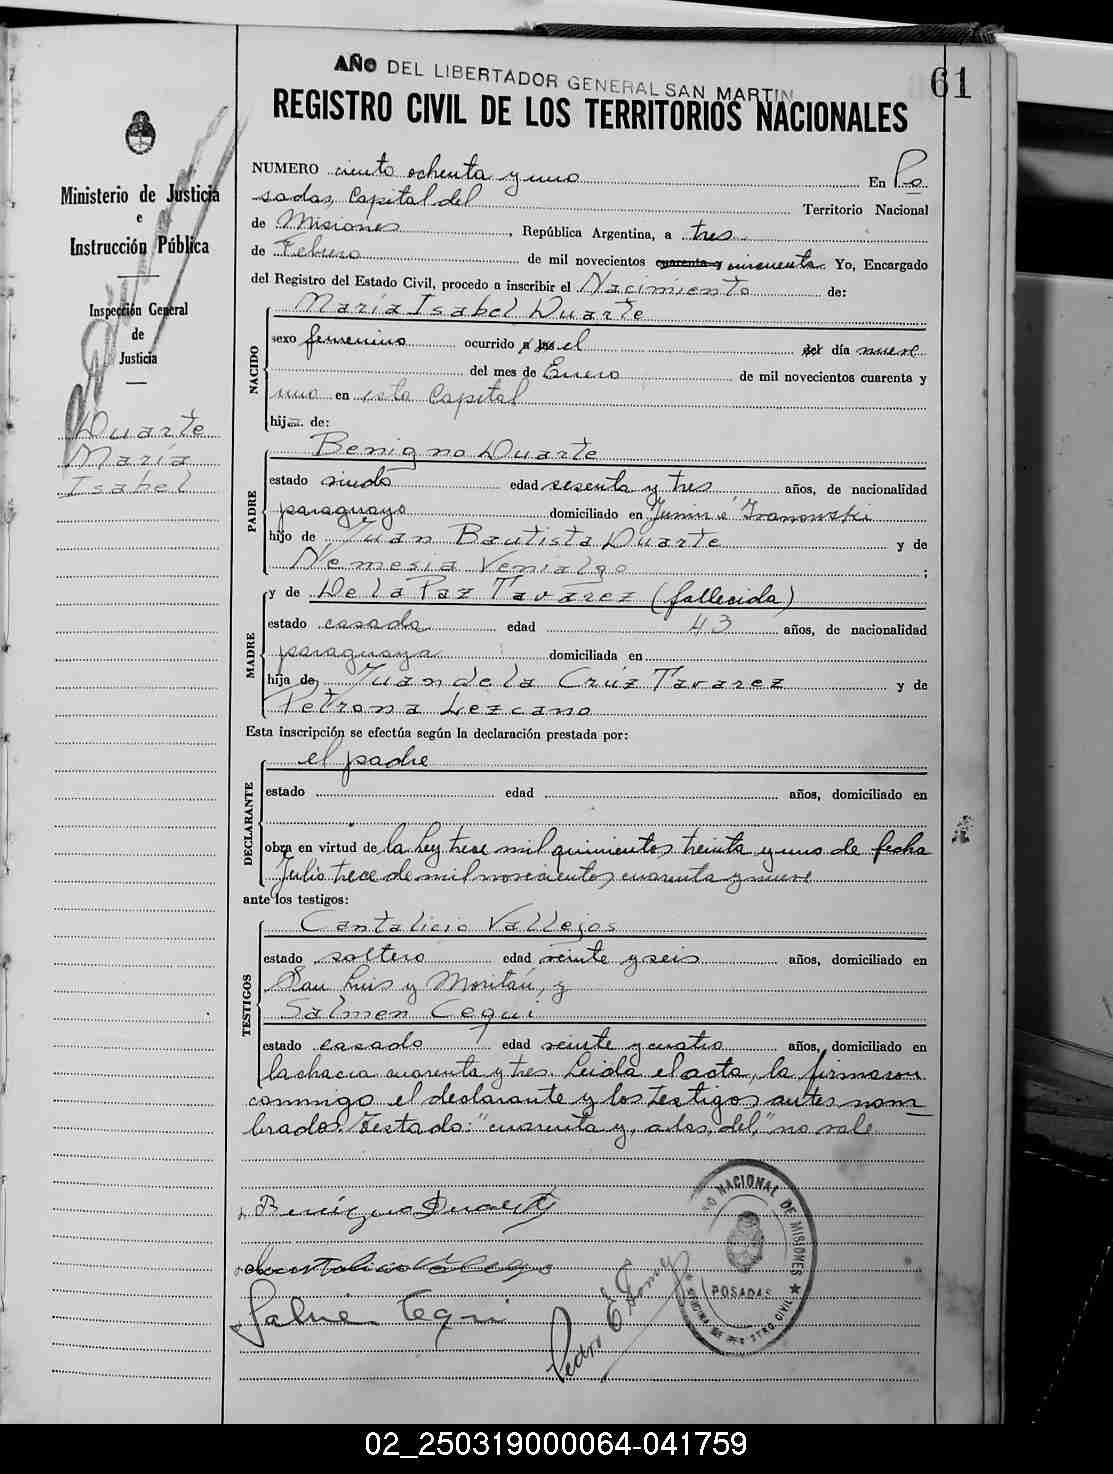 61
AÑO DEL LIBERTADOR GENERAL SAN MARTIN
REGISTRO CIVIL DE LOS TERRITORIOS NACIONALES
Ministerio de Justicia
e
Instrucción Pública
Inspección General
de
Justicia
Duarte
María
Isabel
NUMERO ciento ochenta y uno En Po
sadas, Capital del Territorio Nacional
de Misiones, República Argentina, a tres
de Febrero de mil novecientos cuarenta y cincuenta. Yo, Encargado
del Registro del Estado Civil, procedo a inscribir el Nacimiento de:
María Isabel Duarte
NACIDO
sexo femenino ocurrido a las el del día nueve
del mes de Enero de mil novecientos cuarenta y
uno en esta Capital
hija de:
Benigno Duarte
PADRE
estado viudo edad sesenta y tres años, de nacionalidad
paraguayo domiciliado en Junin e Ivanowski
hijo de Juan Bautista Duarte y de
Nemesia Venialgo;
y de De la Paz Tavarez (fallecida)
MADRE
estado casada edad 43 años, de nacionalidad
paraguaya domiciliada en
hija de Juan de la Cruz Tavarez y de
Petrona Lezcano
Esta inscripción se efectúa según la declaración prestada por:
el padre
DECLARANTE
estado edad años, domiciliado en
obra en virtud de la ley trece mil quinientos treinta y uno de fecha
Julio trece de mil novecientos cuarenta y nueve
ante los testigos:
Cantalicio Vallejos
TESTIGOS
estado soltero edad veinte y seis años, domiciliado en
San Luis y Moritán, y
Salmen Cequi
estado casado edad veinte y cuatro años, domiciliado en
la chacra cuarenta y tres. Leida el acta, la firmaron
conmigo el declarante y los testigos antes nom
brados. Testado: "cuarenta y, a las, del," no vale
Benigno Duarte
Cantalicio Vallejos
Pedro E. Gomez
NACIONAL DE MISIONES
POSADAS
02_250319000064-041759